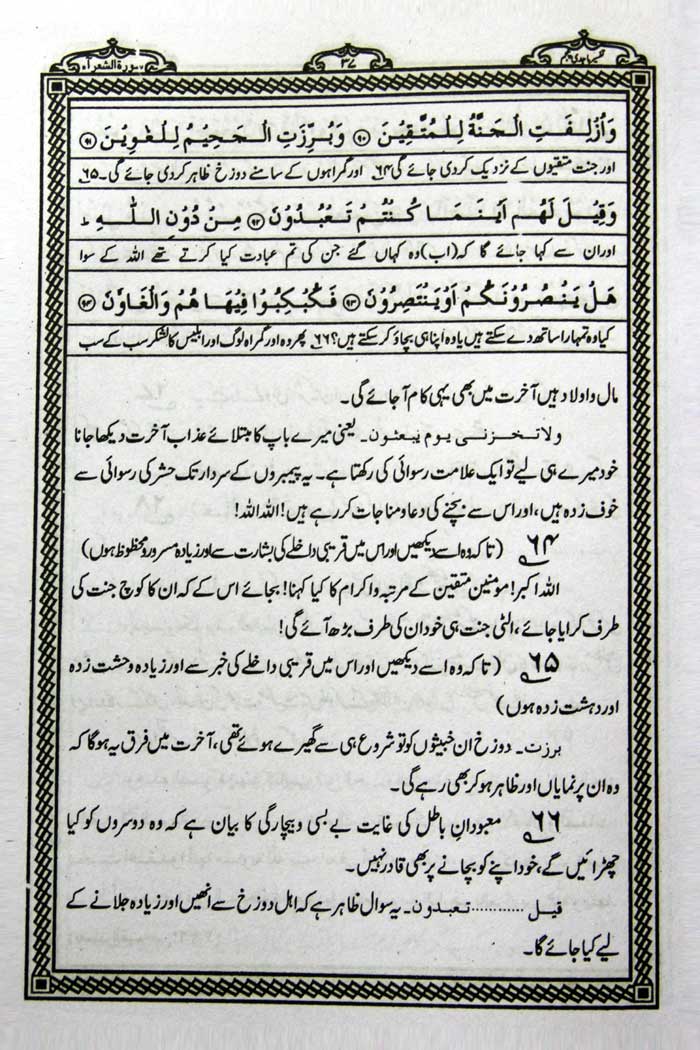 تفسیر ماجدی پنجم
۳۷
سورة الشعرآء
وَاُزْلِفَتِ الْجَنَّةُ لِلْمُتَّقِيْنَ ۹۰ وَبُرِّزَتِ الْجَحِيْمُ لِلْغٰوِيْنَ ۹۱
اور جنت متقیوں کے نزدیک کردی جائے گی ۶۴ اور گمراہوں کے سامنے دوزخ ظاہر کردی جائے گی۔ ۶۵
وَقِيْلَ لَهُمْ اَيْنَمَا كُنْتُمْ تَعْبُدُوْنَ ۹۲ مِنْ دُوْنِ اللّٰهِ ط
اور ان سے کہا جائے گا کہ (اب) وہ کہاں گئے جن کی تم عبادت کیا کرتے تھے اللہ کے سوا
هَلْ يَنْصُرُوْنَكُمْ اَوْيَنْتَصِرُوْنَ ۹۳ فَكُبْكِبُوْا فِيْهَا هُمْ وَالْغَاوٗنَ ۹۴
کیا وہ تمہارا ساتھ دے سکتے ہیں یا وہ اپنا ہی بچاؤ کرسکتے ہیں؟ ۶۶ پھر وہ اور گمراہ لوگ اور ابلیس کا لشکر سب کے سب
مال و اولاد ہیں آخرت میں بھی یہی کام آجائے گی۔
ولا تخزنی یوم یبعثون۔ یعنی میرے باپ کا مبتلائے عذاب آخرت دیکھا جانا
خود میرے ہی لیے تو ایک علامت رسوائی کی رکھتا ہے۔ یہ پیمبروں کے سردار تک حشر کی رسوائی سے
خوف زدہ ہیں، اور اس سے بچنے کی دعا و مناجات کر رہے ہیں! اللہ اللہ!
۶۴ (تاکہ وہ اسے دیکھیں اور اس میں قریبی داخلے کی بشارت سے اور زیادہ مسرور و محظوظ ہوں)
اللہ اکبر! مومنین متقین کے مرتبہ و اکرام کا کیا کہنا! بجائے اس کے کہ ان کا کوچ جنت کی
طرف کرایا جائے، الٹی جنت ہی خود ان کی طرف بڑھ آئے گی!
۶۵ (تاکہ وہ اسے دیکھیں اور اس میں قریبی داخلے کی خبر سے اور زیادہ وحشت زدہ
اور دہشت زدہ ہوں)
برزت۔ دوزخ ان خبیثوں کو تو شروع ہی سے گھیرے ہوئے تھی، آخرت میں فرق یہ ہوگا کہ
وہ ان پر نمایاں اور ظاہر ہوکر بھی رہے گی۔
۶۶ معبودانِ باطل کی غایت بے بسی و بیچارگی کا بیان ہے کہ وہ دوسروں کو کیا
چھڑائیں گے، خود اپنے کو بچانے پر بھی قادر نہیں۔
قیل ............ تعبدون۔ یہ سوال ظاہر ہے کہ اہل دوزخ سے انھیں اور زیادہ جلانے کے
لیے کیا جائے گا۔